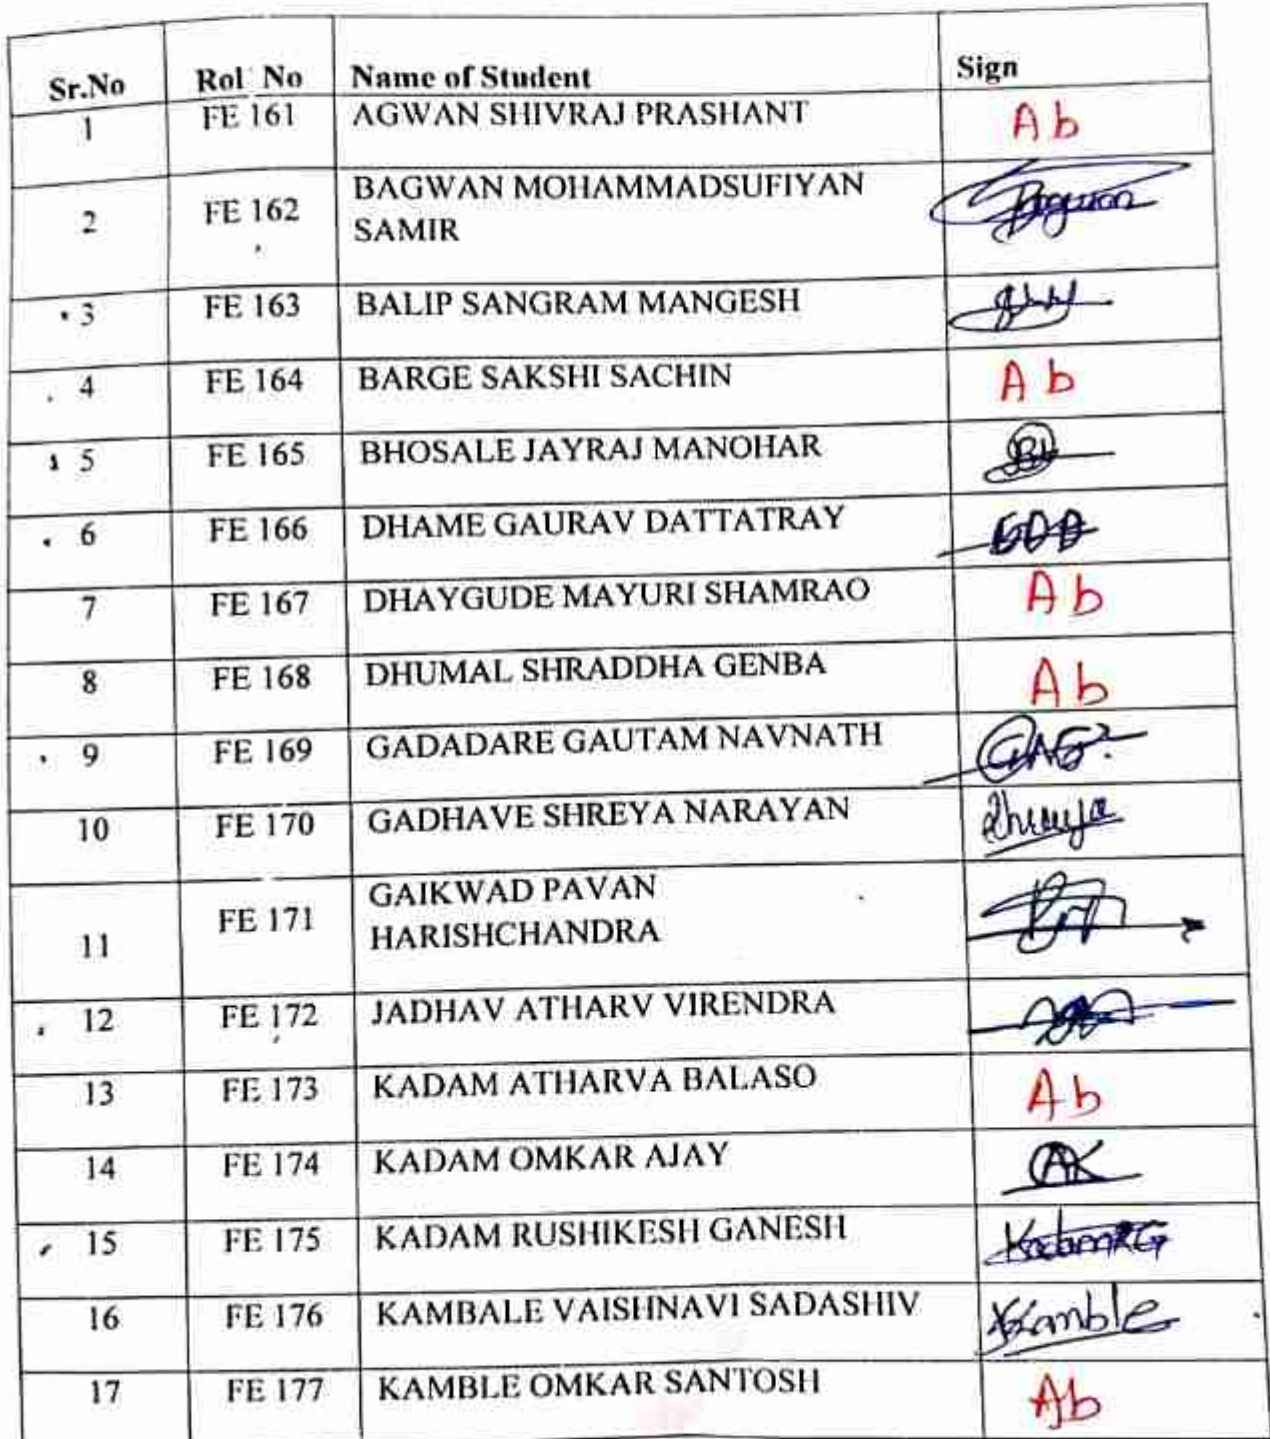 Sr.No Rol No Name of Student Sign
1 FE 161 AGWAN SHIVRAJ PRASHANT Ab
2 FE 162 BAGWAN MOHAMMADSUFIYAN
SAMIR Bagwan
3 FE 163 BALIP SANGRAM MANGESH
4 FE 164 BARGE SAKSHI SACHIN Ab
5 FE 165 BHOSALE JAYRAJ MANOHAR
6 FE 166 DHAME GAURAV DATTATRAY GDD
7 FE 167 DHAYGUDE MAYURI SHAMRAO Ab
8 FE 168 DHUMAL SHRADDHA GENBA Ab
9 FE 169 GADADARE GAUTAM NAVNATH GNG
10 FE 170 GADHAVE SHREYA NARAYAN Shreya
11 FE 171 GAIKWAD PAVAN
HARISHCHANDRA
12 FE 172 JADHAV ATHARV VIRENDRA
13 FE 173 KADAM ATHARVA BALASO Ab
14 FE 174 KADAM OMKAR AJAY AK
15 FE 175 KADAM RUSHIKESH GANESH KadamRG
16 FE 176 KAMBALE VAISHNAVI SADASHIV Kamble
17 FE 177 KAMBLE OMKAR SANTOSH Ab